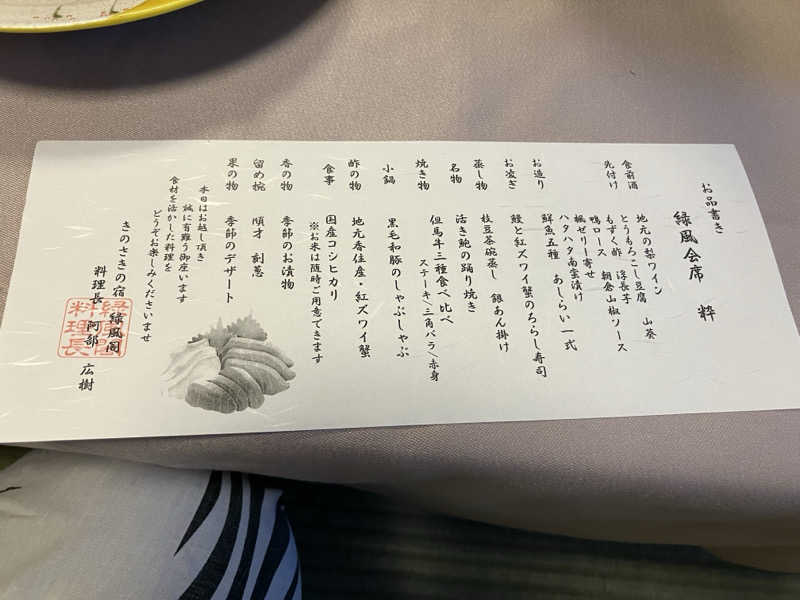 お品書き
緑風会席 粋
食前酒 地元の梨ワイン
先付け とうもろこし豆腐 山葵
もずく酢 淳長芋
鴨ロース 朝倉山椒ソース
楓ゼリー寄せ
ハタハタ南蛮漬け
お造り 鮮魚五種 あしらい一式
お凌ぎ 鰻と紅ズワイ蟹のちらし寿司
蒸し物 枝豆茶碗蒸し 銀あん掛け
名物 活き鮑の踊り焼き
焼き物 但馬牛三種食べ比べ
ステーキ/三角バラ/赤身
小鍋 黒毛和豚のしゃぶしゃぶ
酢の物 地元香住産・紅ズワイ蟹
食事 国産コシヒカリ
※お米は随時ご用意できます
香の物 季節のお漬物
留め椀 順才 刻葱
果の物 季節のデザート
本日はお越し頂き
誠に有難う御座います
食材を活かした料理を
どうぞお楽しみくださいませ
きのさきの宿 緑風閣
料理長 阿部 広樹
緑風閣
料理長